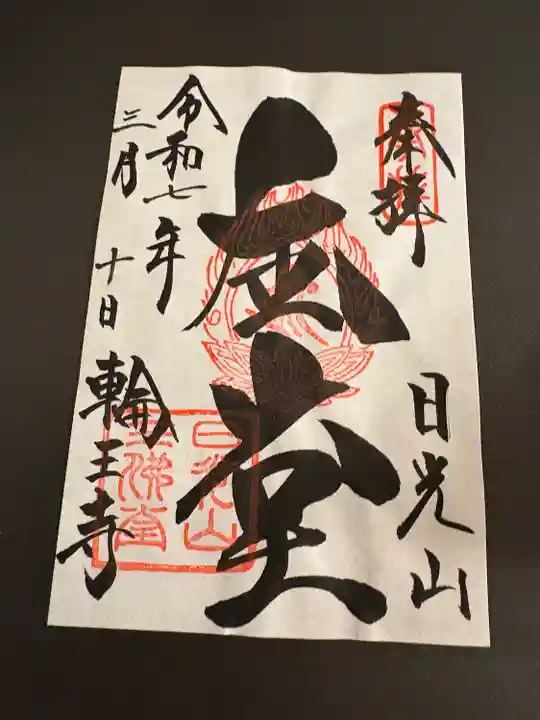 奉拝
日光山
金堂
令和七年
三月 十日
輪王寺
日光山
三佛堂